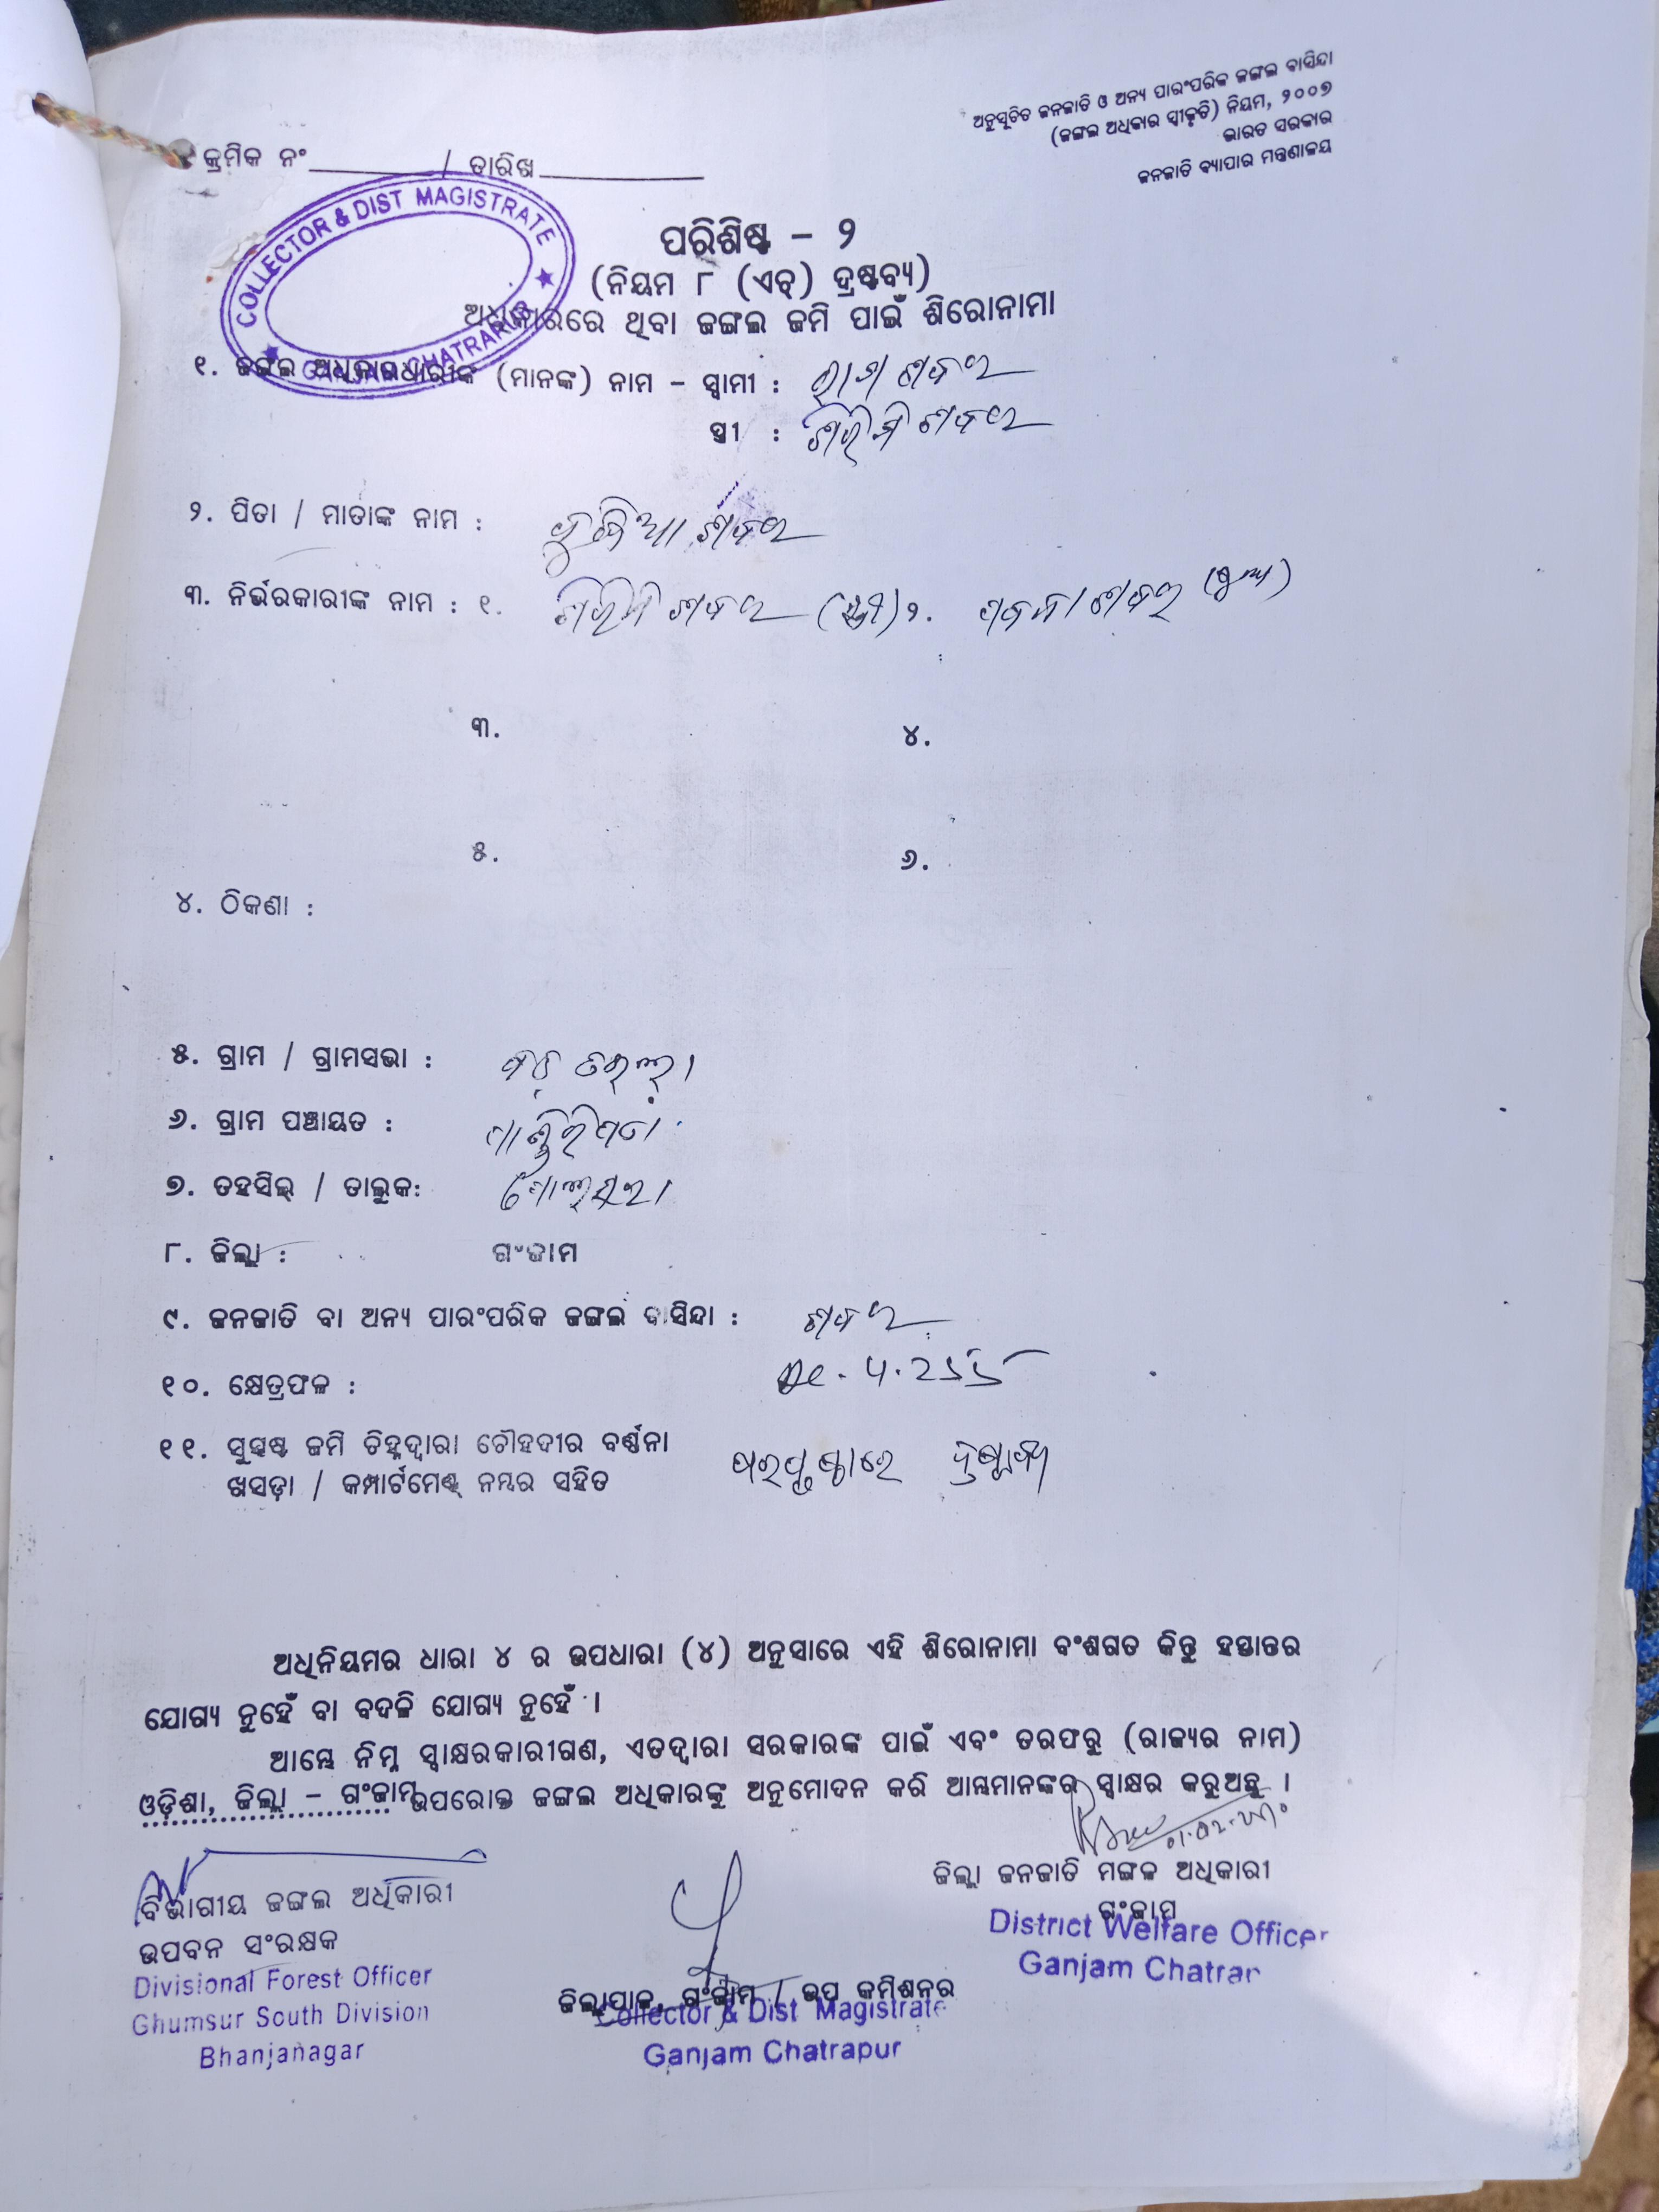 ଅନୁସୂଚିତ ଜନଜାତି ଓ ଅନ୍ୟ ପାରଂପରିକ ଜଙ୍ଗଲ ବାସିନ୍ଦା
(ଜଙ୍ଗଲ ଅଧିକାର ସ୍ୱୀକୃତି) ନିୟମ, ୨୦୦୭
ଭାରତ ସରକାର
ଜନଜାତି ବ୍ୟାପାର ମନ୍ତ୍ରଣାଳୟ
କ୍ରମିକ ନଂ / ତାରିଖ
COLLECTOR & DIST MAGISTRATE
ପରିଶିଷ୍ଟ – ୨
(ନିୟମ ୮ (ଏଚ୍) ଦ୍ରଷ୍ଟବ୍ୟ)
ଅଧିକାରରେ ଥିବା ଜଙ୍ଗଲ ଜମି ପାଇଁ ଶିରୋନାମା
୧. ଜଙ୍ଗଲ ଅଧିକାରଧାରୀଙ୍କ (ମାନଙ୍କ) ନାମ – ସ୍ୱାମୀ : ଶବର
ସ୍ତ୍ରୀ : ଶବର
୨. ପିତା / ମାତାଙ୍କ ନାମ : ଶବର
୩. ନିର୍ଭରକାରୀଙ୍କ ନାମ : ୧. ଶବର (ସ୍ତ୍ରୀ) ୨. ଶବର
୩. ୪.
୫. ୬.
୪. ଠିକଣା :
୫. ଗ୍ରାମ / ଗ୍ରାମସଭା :
୬. ଗ୍ରାମ ପଞ୍ଚାୟତ :
୭. ତହସିଲ୍ / ତାଲୁକ: ପୋଲସରା
୮. ଜିଲ୍ଲା : ଗଂଜାମ
୯. ଜନଜାତି ବା ଅନ୍ୟ ପାରଂପରିକ ଜଙ୍ଗଲ ବାସିନ୍ଦା : ଶବର
୧୦. କ୍ଷେତ୍ରଫଳ :
୧୧. ସୁସ୍ପଷ୍ଟ ଜମି ଚିହ୍ନଦ୍ୱାରା ଚୌହଦୀର ବର୍ଣ୍ଣନା
ଖସଡ଼ା / କମ୍ପାର୍ଟମେଣ୍ଟ୍ ନମ୍ବର ସହିତ ପରପୃଷ୍ଠାରେ ଦ୍ରଷ୍ଟବ୍ୟ
ଅଧିନିୟମର ଧାରା ୪ ର ଉପଧାରା (୪) ଅନୁସାରେ ଏହି ଶିରୋନାମା ବଂଶଗତ କିନ୍ତୁ ହସ୍ତାନ୍ତର
ଯୋଗ୍ୟ ନୁହେଁ ବା ବଦଳି ଯୋଗ୍ୟ ନୁହେଁ ।
ଆମ୍ଭେ ନିମ୍ନ ସ୍ୱାକ୍ଷରକାରୀଗଣ, ଏତଦ୍ୱାରା ସରକାରଙ୍କ ପାଇଁ ଏବଂ ତରଫରୁ (ରାଜ୍ୟର ନାମ)
ଓଡ଼ିଶା, ଜିଲ୍ଲା – ଗଂଜାମ ଉପରୋକ୍ତ ଜଙ୍ଗଲ ଅଧିକାରଙ୍କୁ ଅନୁମୋଦନ କରି ଆମ୍ଭମାନଙ୍କର ସ୍ୱାକ୍ଷର କରୁଅଛୁ ।
ଜିଲ୍ଲା ଜନଜାତି ମଙ୍ଗଳ ଅଧିକାରୀ
ଗଂଜାମ
District Welfare Officer
Ganjam Chatrar
ବିଭାଗୀୟ ଜଙ୍ଗଲ ଅଧିକାରୀ
ଉପବନ ସଂରକ୍ଷକ
Divisional Forest Officer
Ghumsur South Division
Bhanjanagar
ଜିଲ୍ଲାପାଳ, ଗଂଜାମ / ଉପ କମିଶନର
Collector & Dist Magistrate
Ganjam Chatrapur